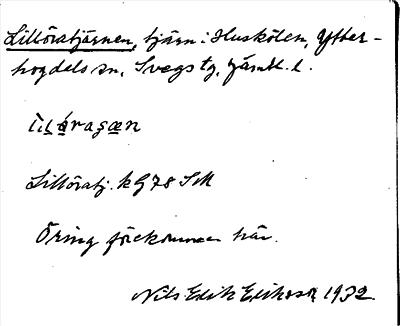 Lillöratjärnen, tjärn i Huskölen, Ytter-
hogdals sn, Svegs tg, Jämtl. l.
Lillöratj. kG78 SM
Öring förekommer här.
Nils Erik Eriksson 1932.